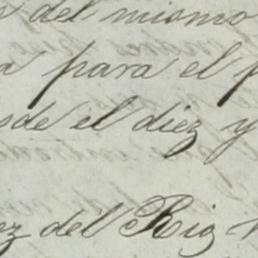 del mismo
para el
sde el diez y
ez del Rio